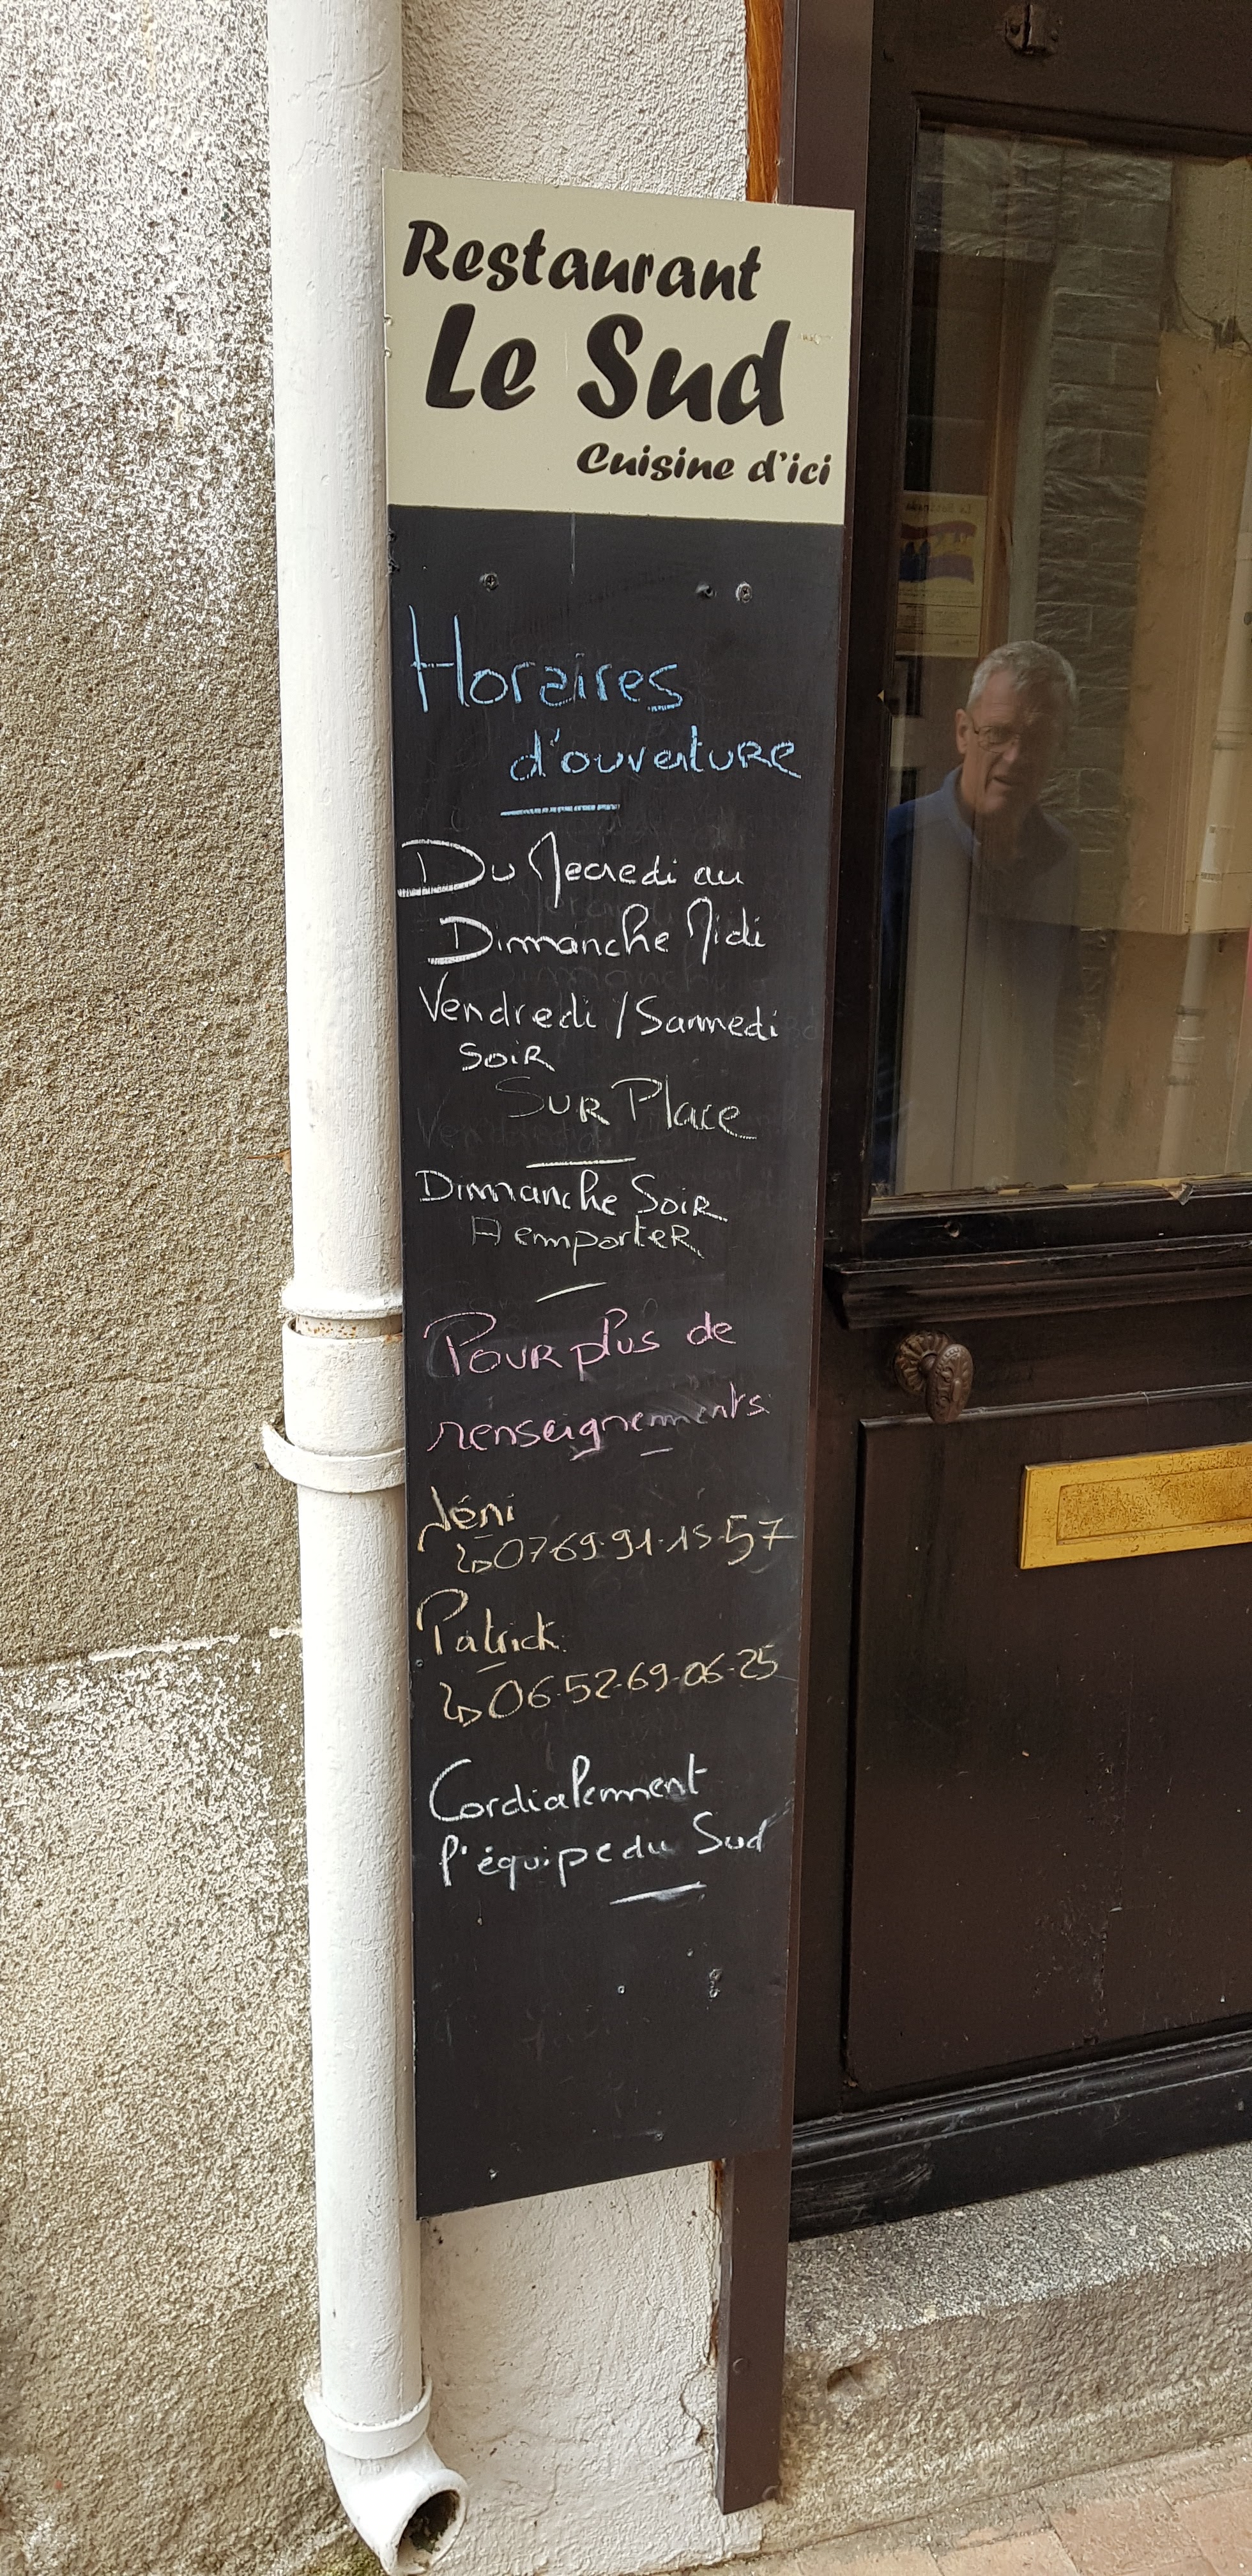 Restaurant
Le Sud
Cuisine d'ici
Horaires
d'ouverture
Du Mercredi au
Dimanche Midi
Vendredi / Samedi
Soir
Sur Place
Dimanche Soir
A emporter
Pour plus de
renseignements
Jéni
07-69-91-15-57
Patrick
06-52-69-06-25
Cordialement
l'équipe du Sud